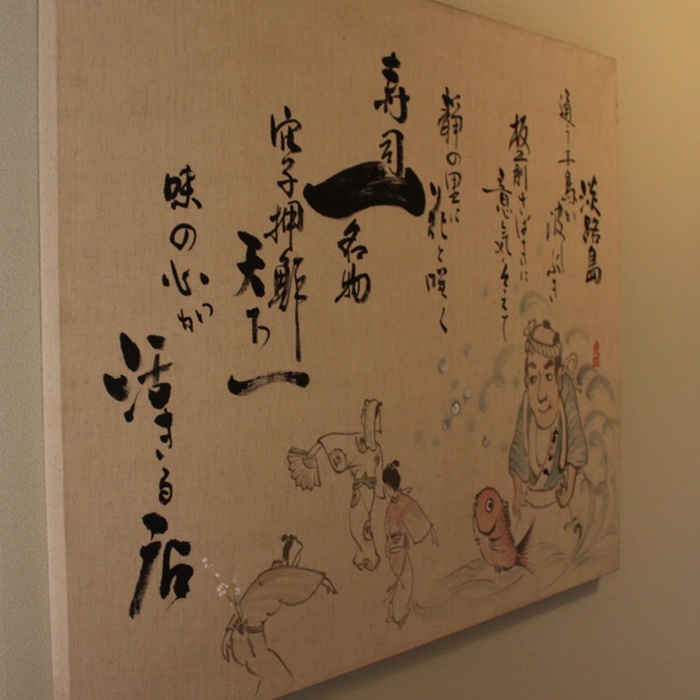 淡路島
通う千鳥が
波しぶき
板前さばきに
意気をそえて
静の里に
花と咲く
寿司一
名物
穴子押鮓
天下一
味の心が
活きる店